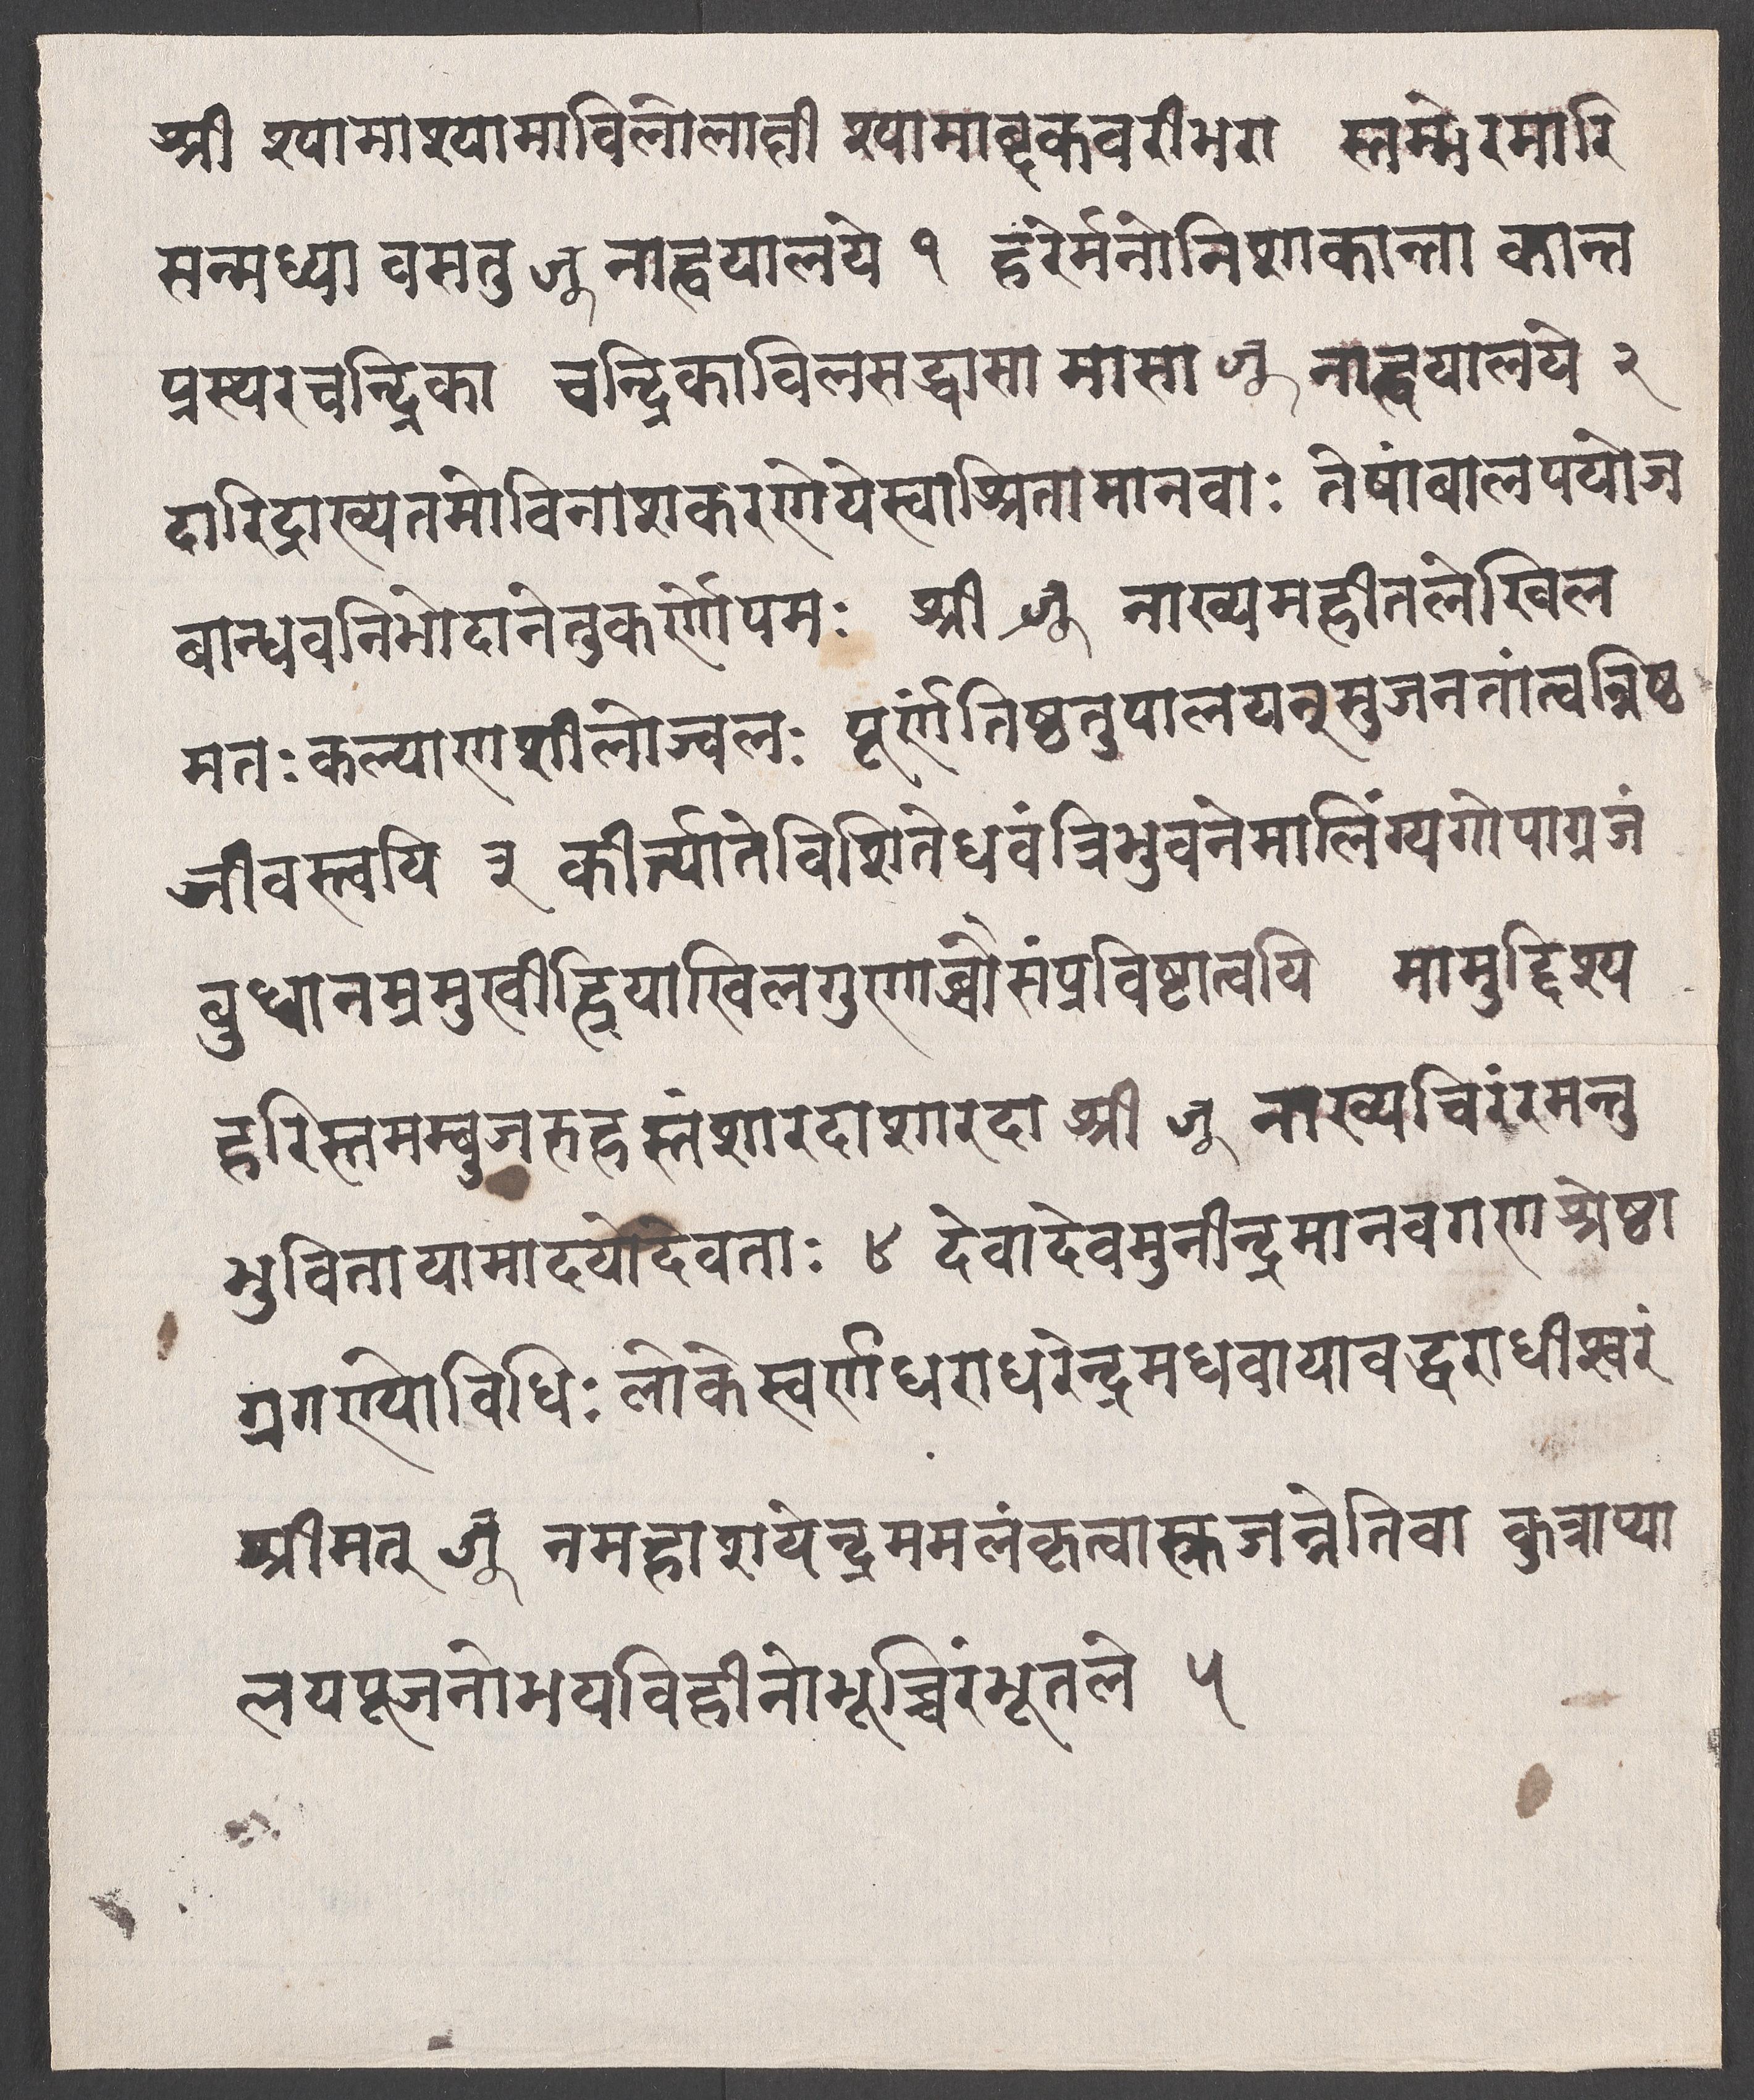 श्री श्यामाश्यामाविलोलाक्षी श्यामाब्दकवरीभरा स्तम्भेरमारि
सन्मध्या वसतु जू नाह्वयालये १ हरेर्मनोनिशाकान्ता कान्त
प्रस्यरचन्द्रिका चन्द्रिकाविलसद्धासा मासा जू नाह्वयालये २
दारिद्राख्यतमोविनाशकरणेयेस्वाश्रितामानवाः तेषांबालपयोज
बान्धवनिभोदानेतुकर्णोपमः श्री जू नाख्यमहीतलेखिल
मतःकल्याणशीलोज्वलः पूर्णंतिष्ठतुपालयन्सुजनतांत्वन्निष्ठ
जीवस्त्वयि ३ कीर्त्यातेविशितेधवंत्रिभुवनेमालिंग्यगोपाग्रजं
बुध्वानम्रमुखीह्रियाखिलगुणाब्धौसंप्रविष्टात्वयि मामुद्दिश्य
हरिस्तमम्बुजरुहस्तंशारदाशारदा श्री जू नाख्यचिरंरमन्तु
भुवितायामादयोदेवताः ४ देवादेवमुनीन्द्रमानवगणश्रेष्ठा
ग्रगण्योविधिः लोकेस्वर्णधराधरेन्द्रमधवायावद्धराधीश्वरं
श्रीमत् जू नमहाशयेन्द्रममलंकृत्वासृजन्नेतिवा कुत्राप्या
लयपूजनोभयविहीनोभूच्चिरंभूतले ५